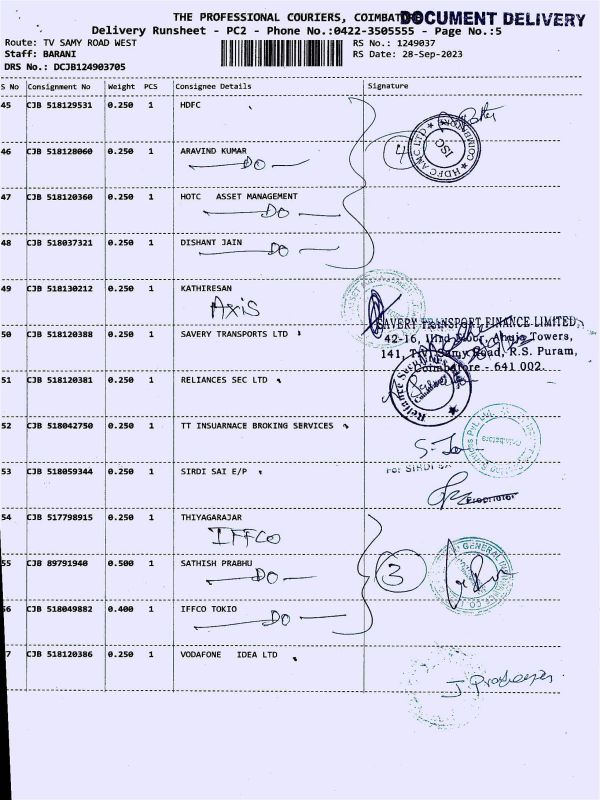 THE PROFESSIONAL COURIERS, COIMBAT
DOCUMENT DELIVERY
Delivery Runsheet - PC2 - Phone No.:0422-3505555 - Page No.:5
Route: TV SAMY ROAD WEST
RS No.: 1249037
Staff: BARANI
RS Date: 28-Sep-2023
DRS No.: DCJB124903705
S No Consignment No Weight PCS Consignee Details Signature
45 CJB 518129531 0.250 1 HDFC
46 CJB 518128060 0.250 1 ARAVIND KUMAR
DO
4
HDFC AMC LTD
ISC
47 CJB 518120360 0.250 1 HOTC ASSET MANAGEMENT
DO
48 CJB 518037321 0.250 1 DISHANT JAIN
DO
49 CJB 518130212 0.250 1 KATHIRESAN
AXIS
50 CJB 518120388 0.250 1 SAVERY TRANSPORTS LTD
SAVERY TRANSPORT FINANCE LIMITED,
42-16, IIInd Floor, Ahuja Towers,
141, T.V. Samy Road, R.S. Puram,
Coimbatore - 641 002.
51 CJB 518120381 0.250 1 RELIANCES SEC LTD
Reliance Securities
52 CJB 518042750 0.250 1 TT INSUARNACE BROKING SERVICES
Coimbatore
53 CJB 518059344 0.250 1 SIRDI SAI E/P
For SIRDI SA
Proprietor
54 CJB 517798915 0.250 1 THIYAGARAJAR
IFFCO
55 CJB 89791940 0.500 1 SATHISH PRABHU
DO
3
GENERAL
56 CJB 518049882 0.400 1 IFFCO TOKIO
DO
7 CJB 518120386 0.250 1 VODAFONE IDEA LTD